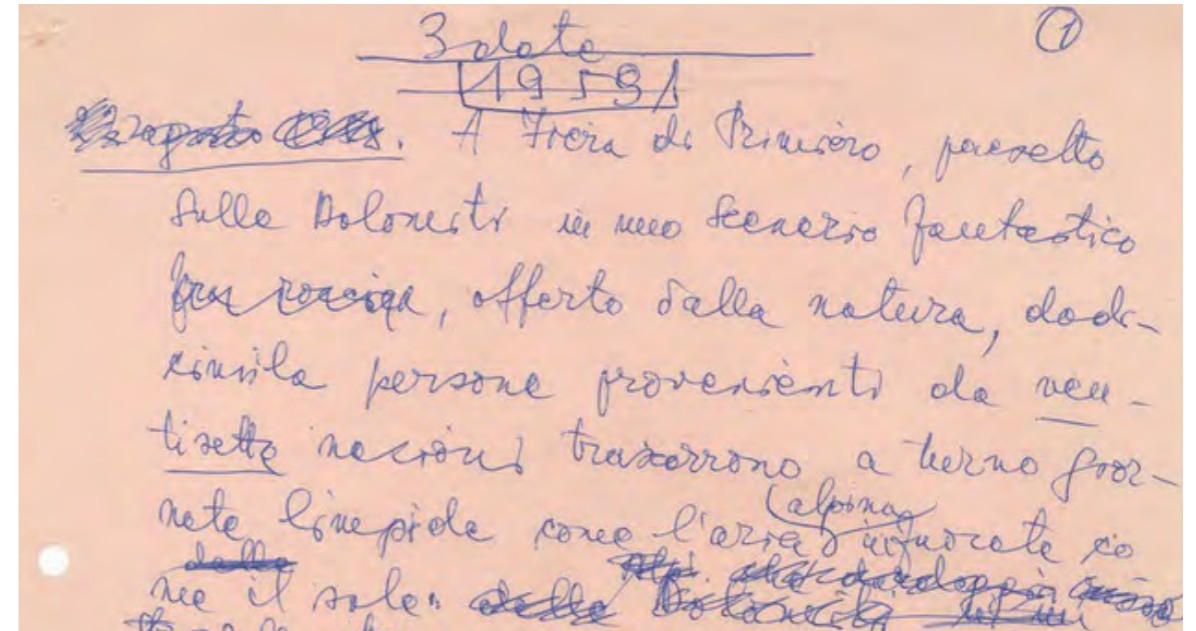 3 date ①
1959
agosto. A Fiera di Primiero, paesetto
sulle Dolomiti in uno scenario fantastico
, offerto dalla natura, dodi-
cimila persone provenienti da ven-
tisette nazioni trascorrono a turno gior-
nate limpide come l'aria alpina, infuocate co
me il sole.